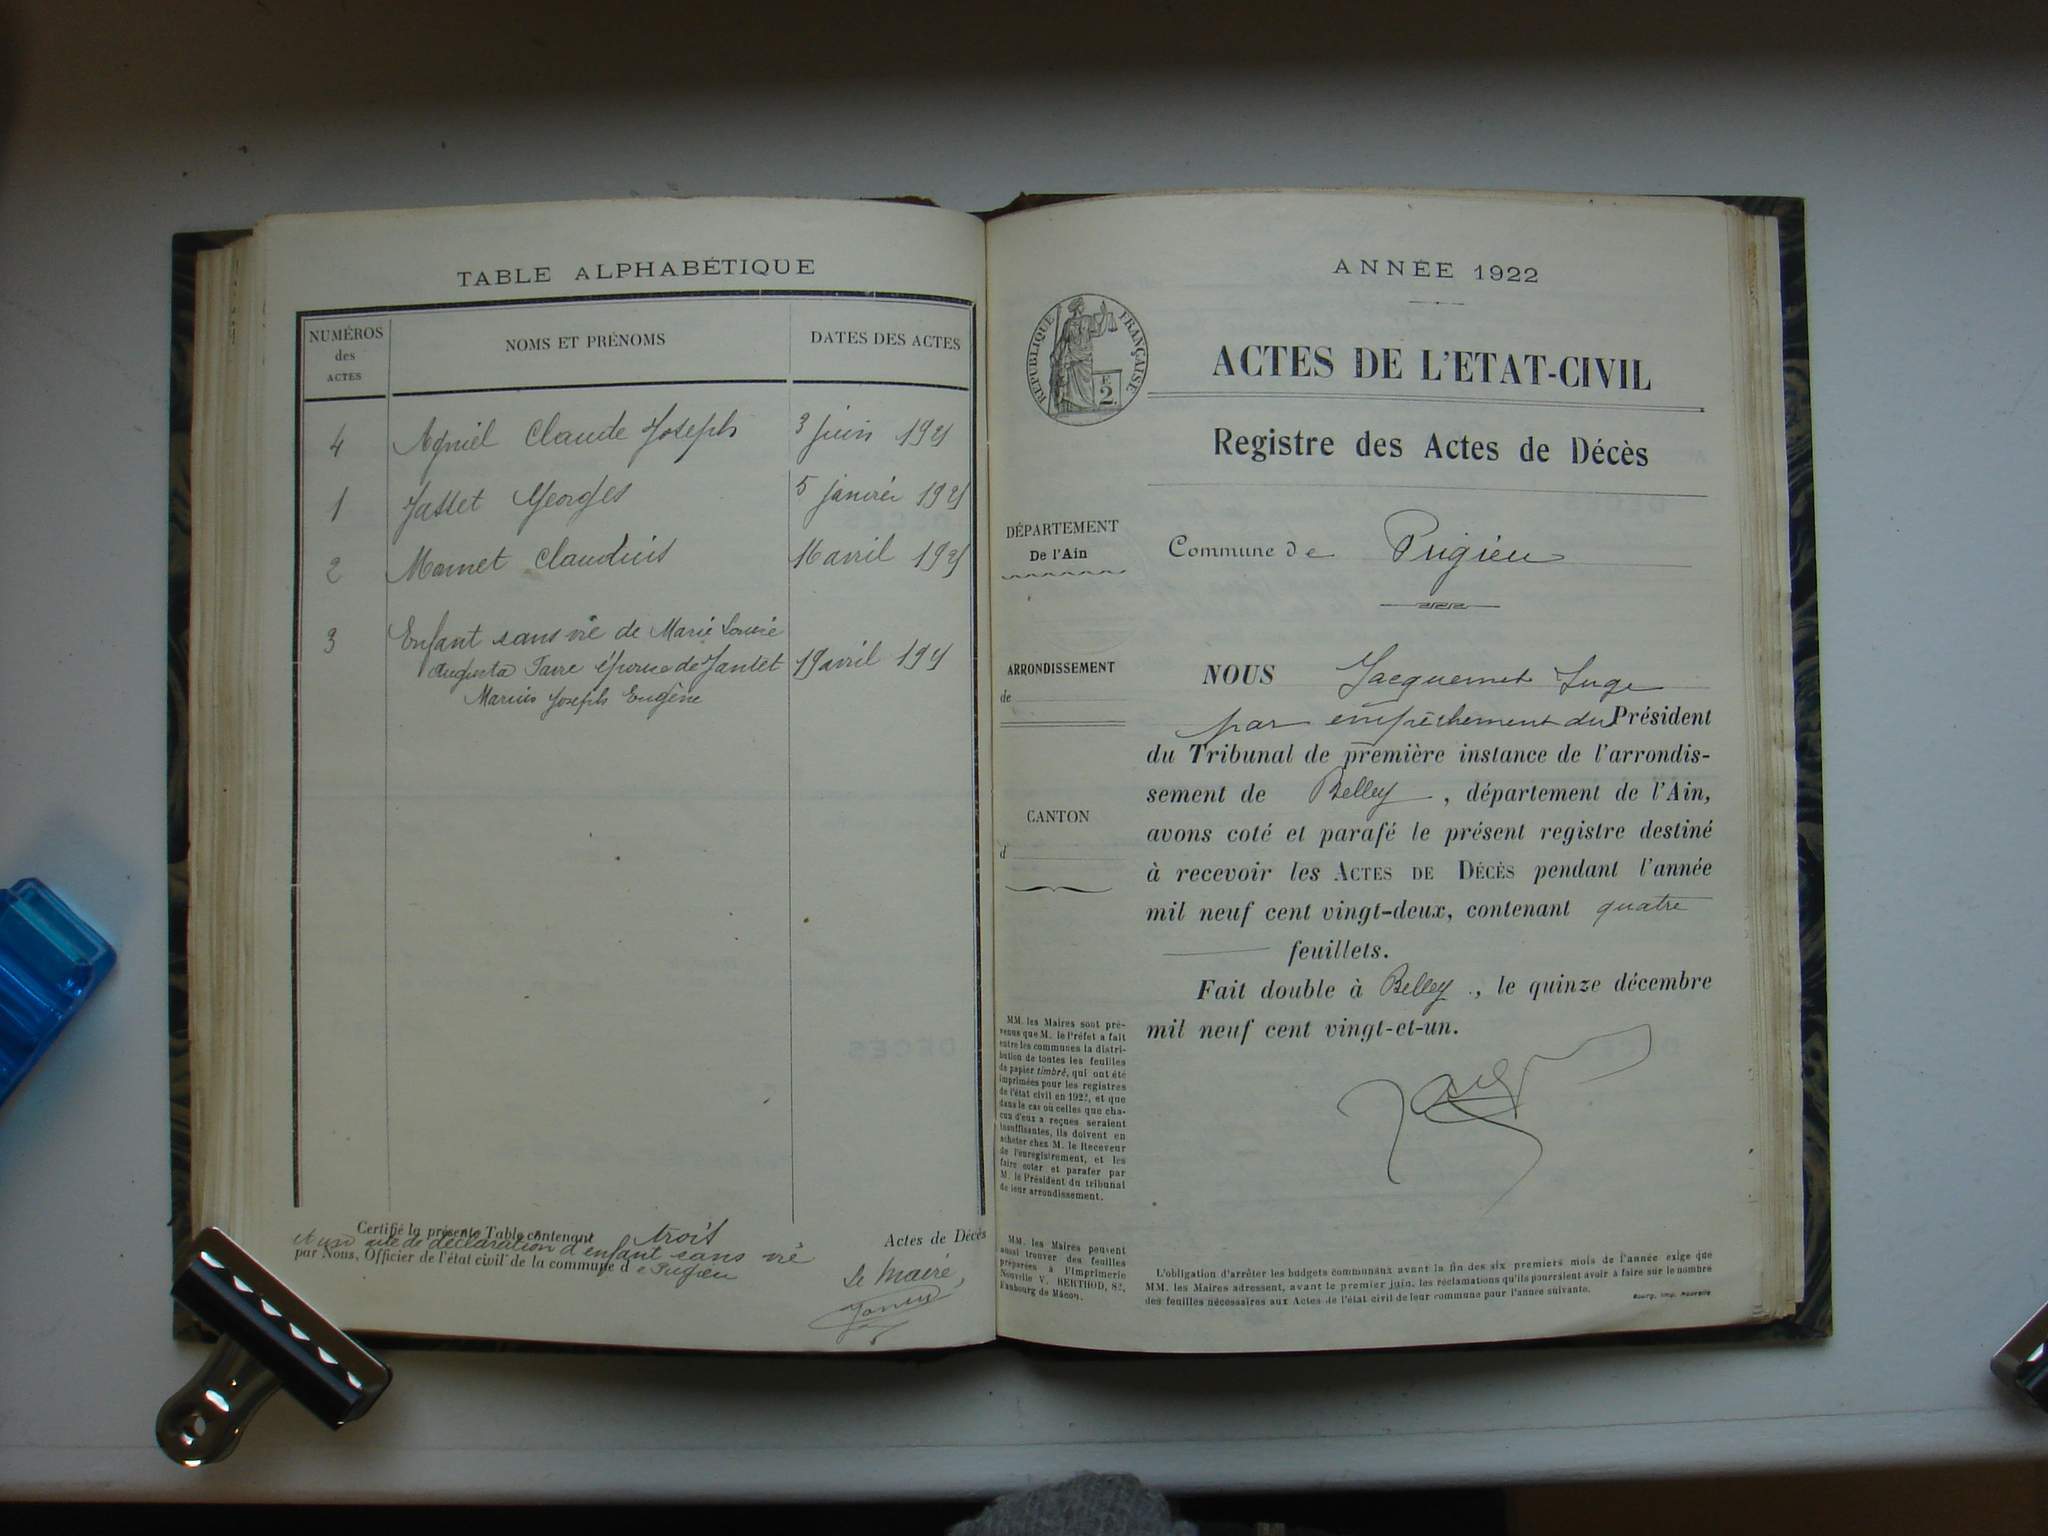 TABLE ALPHABÉTIQUE
NUMÉROS des ACTES
NOMS ET PRÉNOMS
DATES DES ACTES
4 Agniel Claude Joseph 3 juin 1921
1 Jasset Georges 5 janvier 1921
2 Mornet Claudius 16 avril 1921
3 Enfant sans vie de Marie Louise
Augusta Favre épouse de Jantet 19 avril 1921
Marius Joseph Eugène
Certifié la présente Table contenant trois Actes de Décès
et un acte de déclaration d'enfant sans vie
par Nous, Officier de l'état civil de la commune d e Pugieu
Le Maire,
ANNÉE 1922
RÉPUBLIQUE FRANÇAISE
2
ACTES DE L'ETAT-CIVIL
Registre des Actes de Décès
DÉPARTEMENT
De l'Ain
Commune de Pugieu
ARRONDISSEMENT
de
CANTON
d
NOUS Jacquemet Juge
par empêchement du Président
du Tribunal de première instance de l'arrondis-
sement de Belley, département de l'Ain,
avons coté et parafé le présent registre destiné
à recevoir les ACTES DE DÉCÈS pendant l'année
mil neuf cent vingt-deux, contenant quatre
feuillets.
Fait double à Belley, le quinze décembre
mil neuf cent vingt-et-un.
MM. les Maires sont pré-
venus que M. le Préfet a fait
entre les communes la distri-
bution de toutes les feuilles
de papier timbré, qui ont été
imprimées pour les registres
de l'état civil en 1922, et que
dans le cas où celles que cha-
cun d'eux a reçues seraient
insuffisantes, ils doivent en
acheter chez M. le Receveur
de l'enregistrement, et les
faire coter et parafer par
M. le Président du tribunal
de leur arrondissement.
MM. les Maires peuvent
aussi trouver des feuilles
préparées à l'Imprimerie
Nouvelle V. BERTHOD, 82,
Faubourg de Mâcon.
L'obligation d'arrêter les budgets communaux avant la fin des six premiers mois de l'année exige que
MM. les Maires adressent, avant le premier juin, les réclamations qu'ils pourraient avoir à faire sur le nombre
des feuilles nécessaires aux Actes de l'état civil de leur commune pour l'année suivante.
Bourg, Imp. Nouvelle